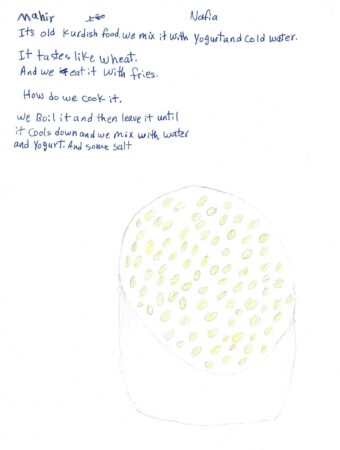 Mahir Nafia
Its old Kurdish food. we mix it with Yogurt and cold water.
It tastes like wheat.
And we eat it with fries.
How do we cook it.
we Boil it and then leave it until
it cools down and we mix with water
and Yogurt. And some salt